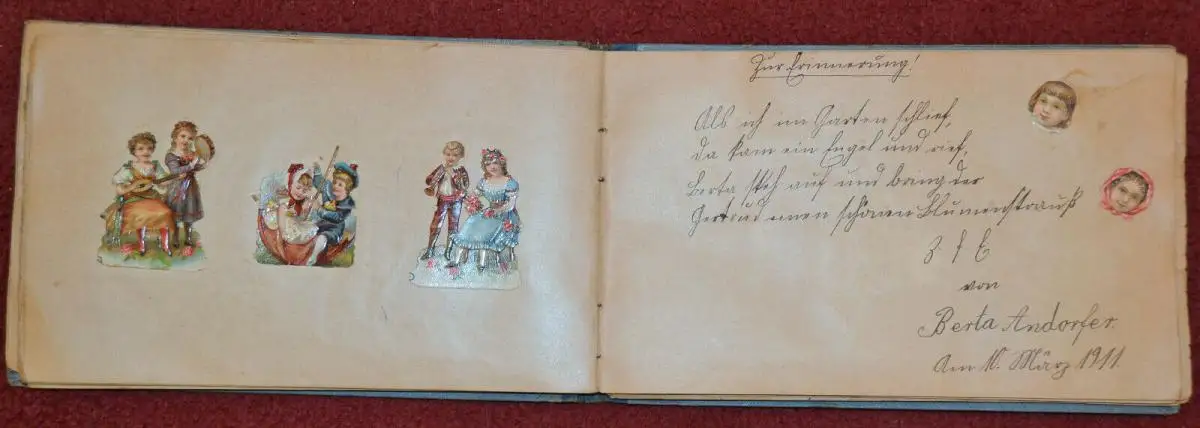 Zur Erinnerung!
Als ich im Garten schlief,
da kam ein Engel und rief,
Berta steh auf und bring der
Gertrud einen schönen Blumenstrauß
Z f E
von
Berta Andorfer.
Am 10. März 1911.